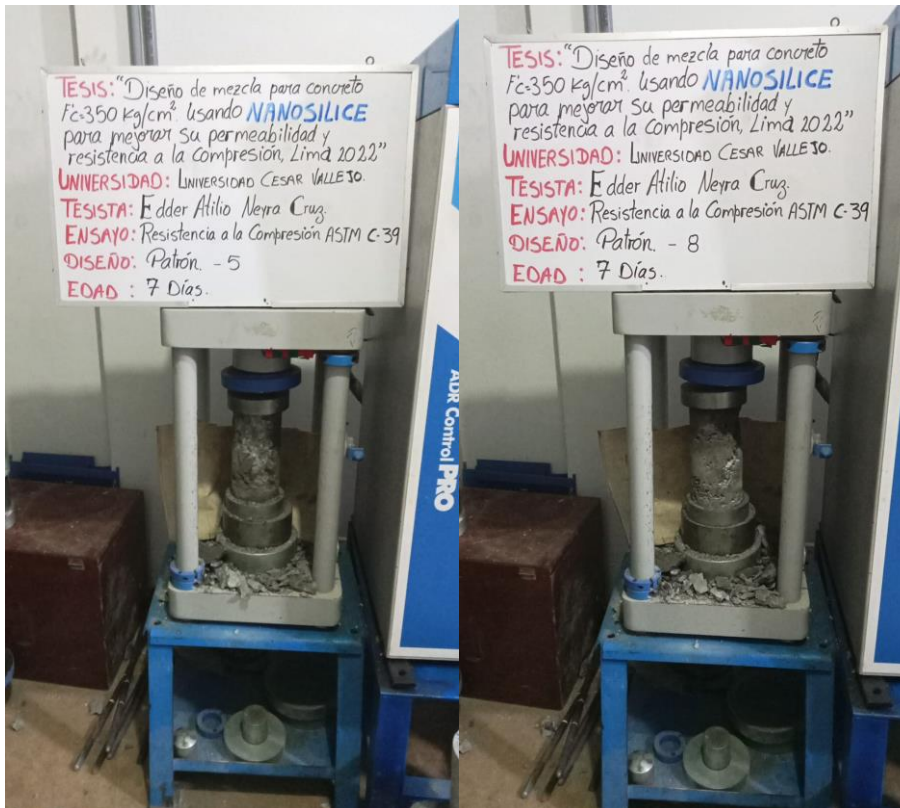 TESIS: "Diseño de mezcla para concreto
F'c=350 Kg/cm². Usando NANOSILICE
para mejorar su permeabilidad y
resistencia a la Compresión, Lima 2022"
UNIVERSIDAD: UNIVERSIDAD CESAR VALLEJO.
TESISTA: Edder Atilio Neyra Cruz.
ENSAYO: Resistencia a la Compresión ASTM C-39
DISEÑO: Patrón. - 5
EDAD : 7 Días.
ADR Control PRO
TESIS: "Diseño de mezcla para concreto
F'c=350 Kg/cm². Usando NANOSILICE
para mejorar su permeabilidad y
resistencia a la Compresión, Lima 2022"
UNIVERSIDAD: UNIVERSIDAD CESAR VALLEJO.
TESISTA: Edder Atilio Neyra Cruz.
ENSAYO: Resistencia a la Compresión ASTM C-39
DISEÑO: Patrón. - 8
EDAD : 7 Días.